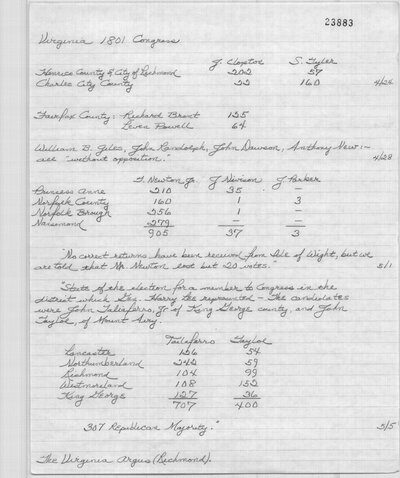 23883
Virginia 1801 Congress
J. Clopton S. Tyler
Henrico County & City of Richmond 202 57
Charles City County 22 160 4/24
Fairfax County: Richard Brent 125
Leven Powell 64
William B. Giles, John Randolph, John Dawson, Anthony New:-
all "without opposition." 4/28
T. Newton Jr. J. Nivison J. Parker
Princess Anne 210 35 -
Norfolk County 160 1 3
Norfolk Borough 256 1 -
Nansemond 279 - -
905 37 3
"No correct returns have been received from Isle of Wight, but we
are told that Mr. Newton lost but 20 votes." 5/1
"State of the election for a member to Congress in the
district which Gen. Harry Lee represented - The candidates
were John Taliaferro, Jr. of King George county, and John
Taylor, of Mount Airy.
Taliaferro Taylor
Lancaster 126 54
Northumberland 242 59
Richmond 104 99
Westmoreland 108 152
King George 127 36
707 400
307 Republican Majority." 5/5
The Virginia Argus (Richmond).